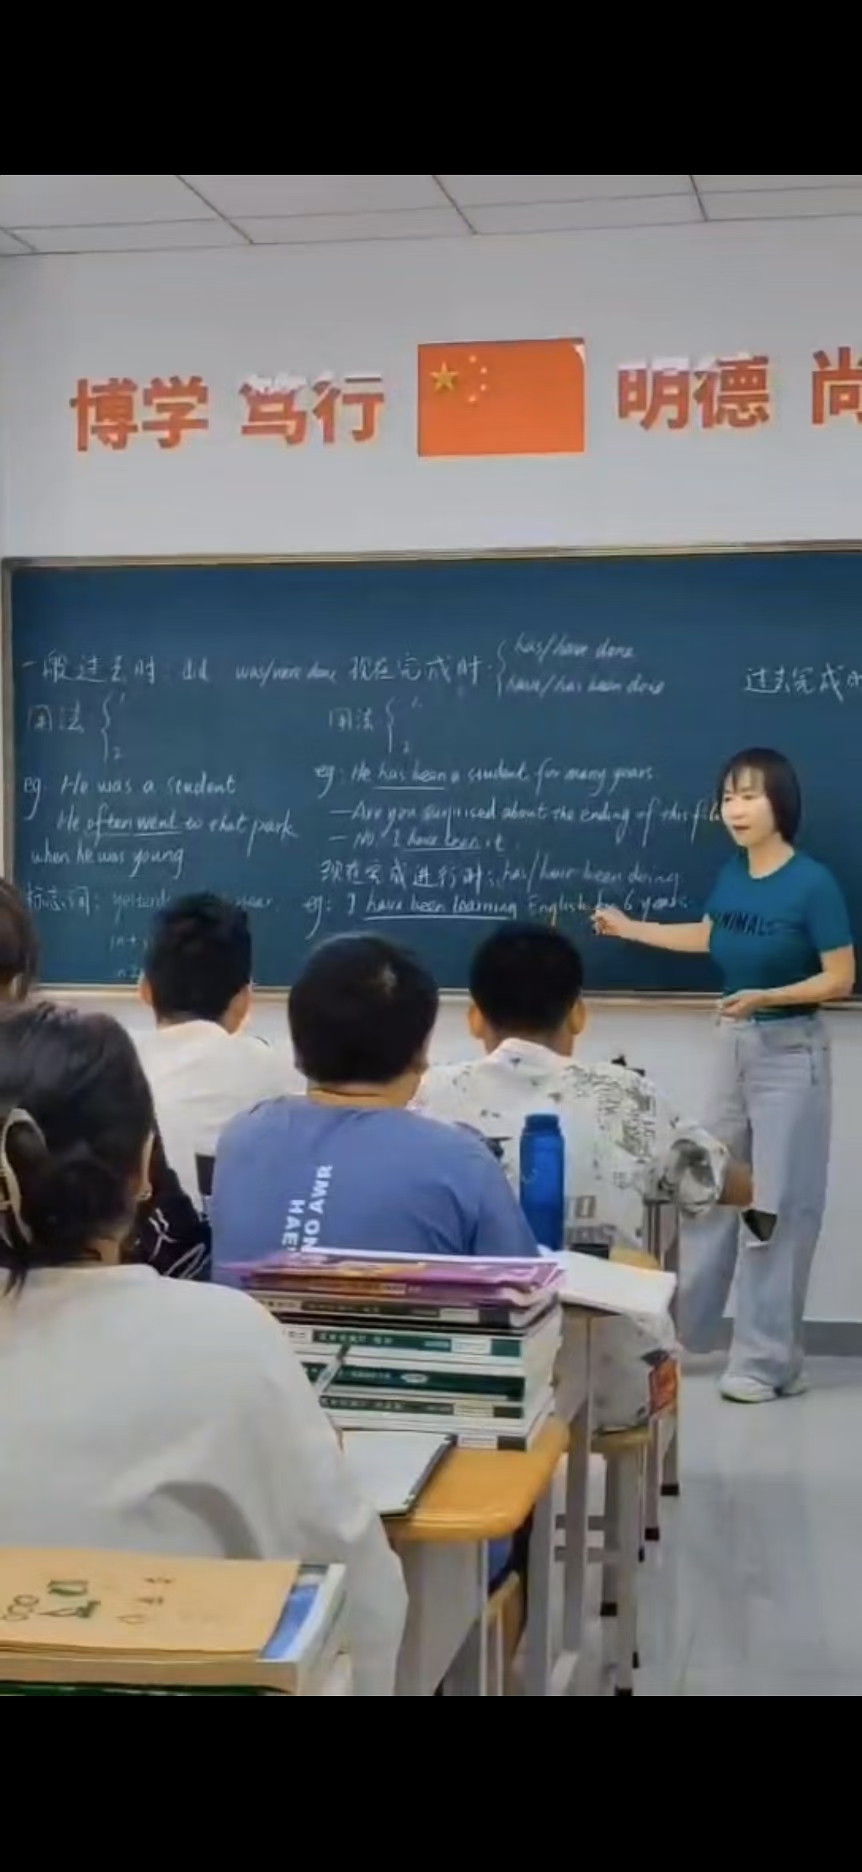 博学 笃行 明德 尚
一般过去时: did was/were done
用法 { 1.
2
eg. He was a student
He often went to that park
when he was young
标志词: yesterd
现在完成时: { has/have done
have/has been done
用法 { 1.
2
eg: He has been a student for many years.
—Are you surprised about the ending of this fil
— No. I have seen it.
现在完成进行时: has/have been doing.
eg: I have been learning English for 6 years.
过去完成时
ANIMALS